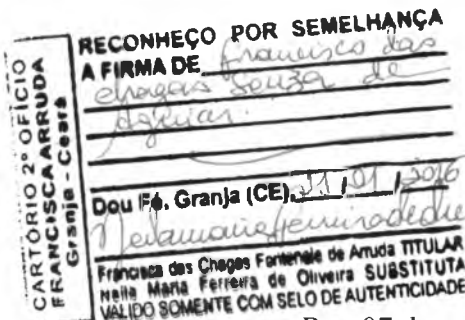 CARTÓRIO 2º OFÍCIO
FRANCISCA ARRUDA
Granja - Ceará
RECONHEÇO POR SEMELHANÇA
A FIRMA DE Francisco das
chagas Souza de
Aguiar.
Dou Fé. Granja (CE), 21/01/2016
Francisca das Chagas Fontenele de Arruda TITULAR
Neila Maria Ferreira de Oliveira SUBSTITUTA
VÁLIDO SOMENTE COM SELO DE AUTENTICIDADE